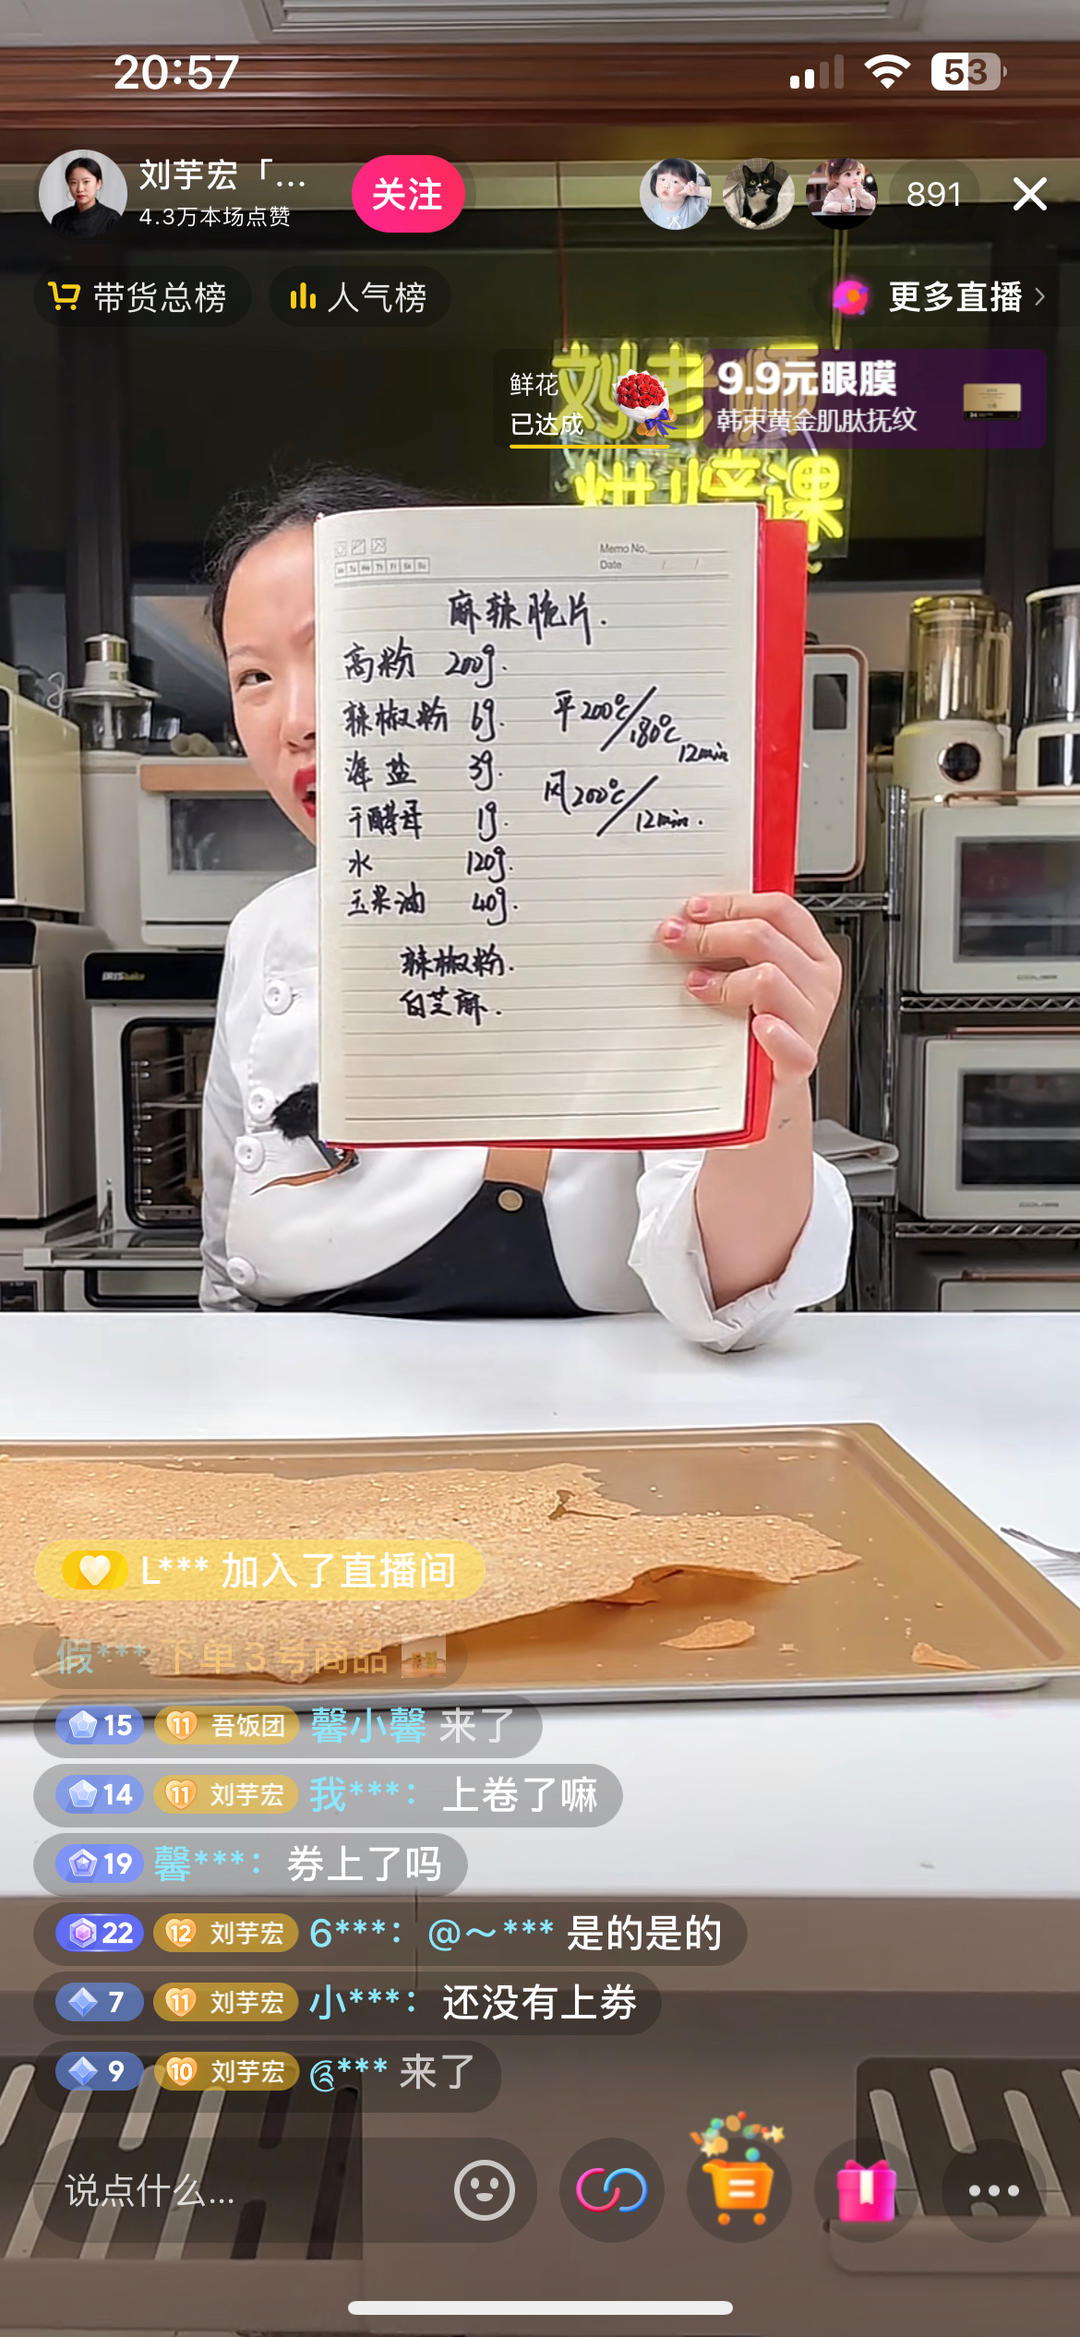 20:57
53
刘芋宏「...
4.3万本场点赞
关注
891
带货总榜
人气榜
更多直播
鲜花
已达成
9.9元眼膜
韩束黄金肌肽抚纹
刘老师
烘焙课
Memo No.
Date / /
Mo Tu We Th Fr Sa Su
麻辣脆片.
高粉 200g.
辣椒粉 6g.
海盐 3g.
干酵母 1g.
水 120g.
玉米油 40g.
平200℃/180℃
12min
风200℃/12min.
辣椒粉.
白芝麻.
L*** 加入了直播间
假*** 下单 3 号商品
15 11 吾饭团 馨小馨 来了
14 11 刘芋宏 我***: 上卷了嘛
19 馨***: 券上了吗
22 12 刘芋宏 6***: @～*** 是的是的
7 11 刘芋宏 小***: 还没有上券
9 10 刘芋宏 *** 来了
说点什么...